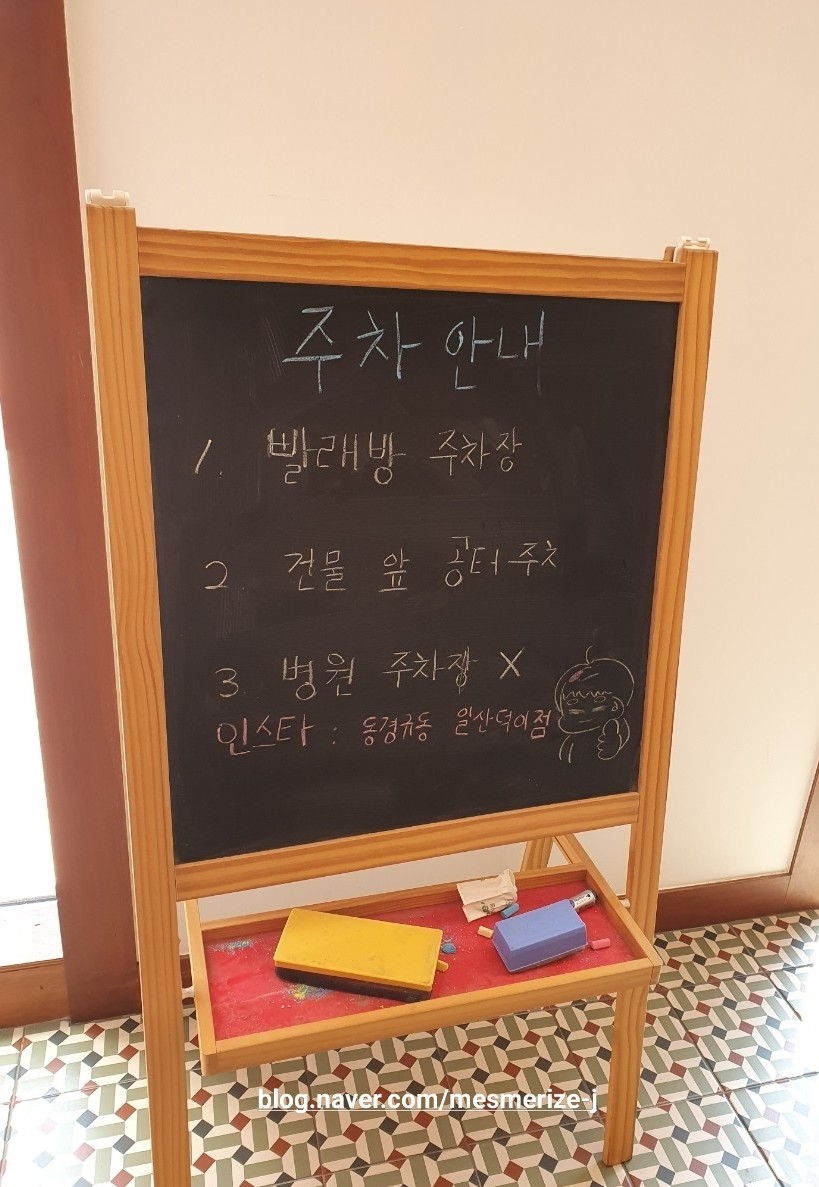 주차 안내
1. 빨래방 주차장
2. 건물 앞 공터 주차
3. 병원 주차장 X
인스타 : 동경규동 일산덕이점
blog.naver.com/mesmerize-j